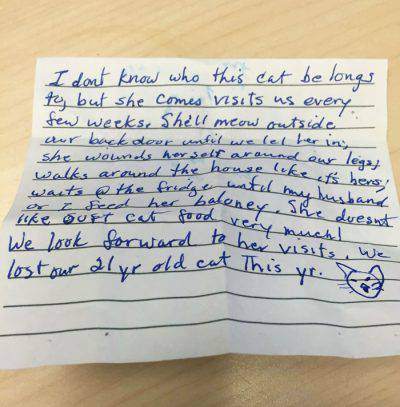 I dont know who this cat belongs
to, but she comes visits us every
few weeks. She'll meow outside
our back door until we let her in;
she wounds herself around our legs,
walks around the house like it's hers,
waits @ the fridge until my husband
or I feed her baloney. She doesn't
like OUR cat food very much!
We look forward to her visits. We
lost our 21 yr old cat This yr.